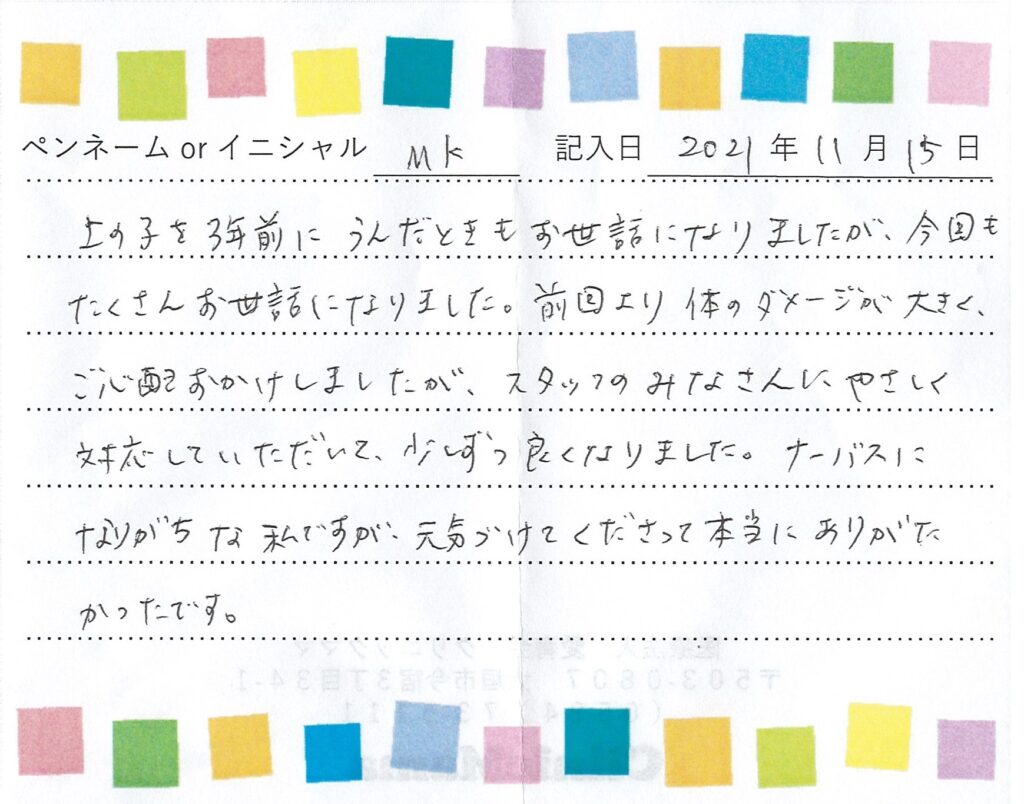 ペンネーム or イニシャル MK 記入日 2021 年 11 月 15 日
上の子を3年前にうんだときもお世話になりましたが、今回も
たくさんお世話になりました。前回より体のダメージが大きく、
ご心配おかけしましたが、スタッフのみなさんにやさしく
対応していただいて、少しずつ良くなりました。ナーバスに
なりがちな私ですが、元気づけてくださって本当にありがた
かったです。